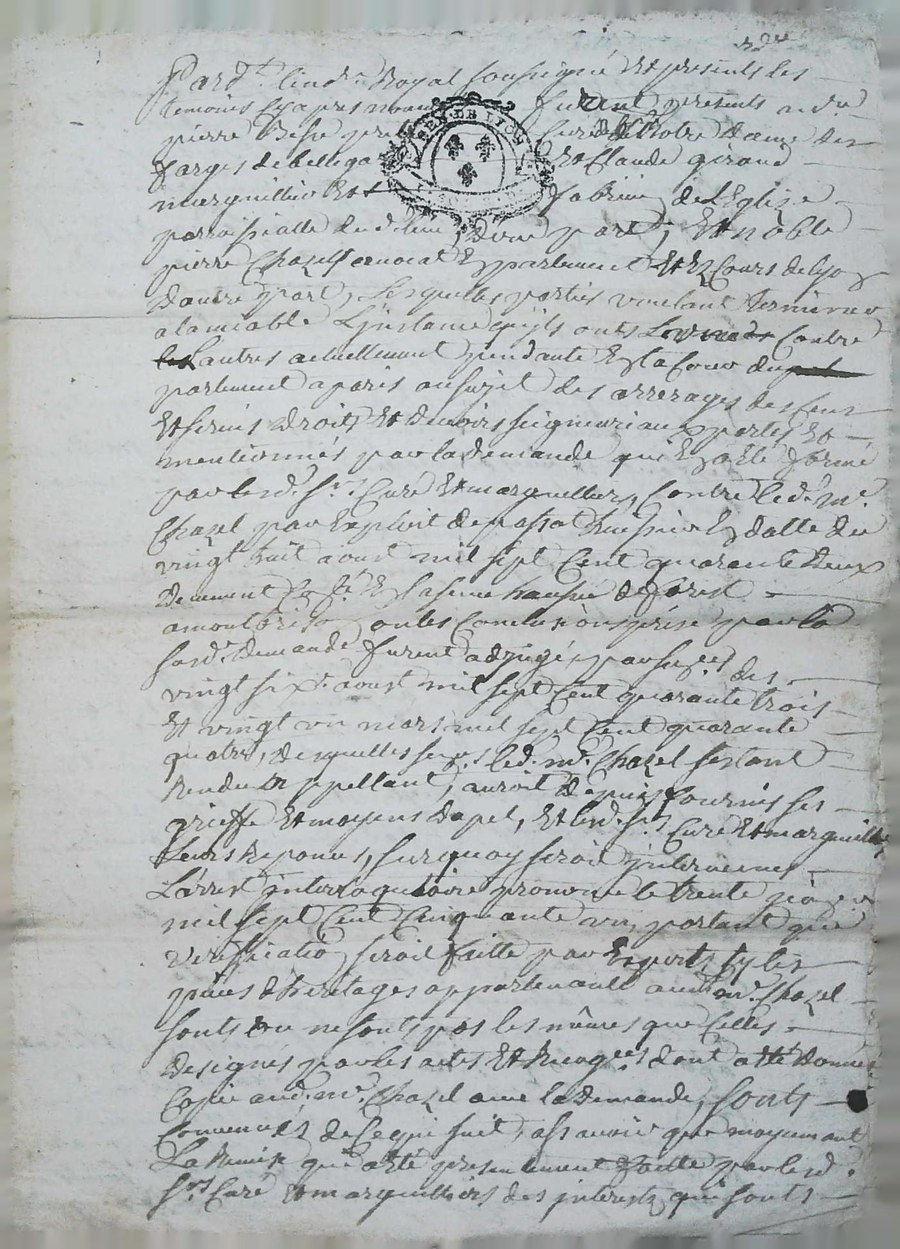 Pardt. Royal soussigné Et presents les
temoins Cyapres nommés furent presents
pierre Curé de Notre Dame des
farges de bellega Et Claude giraud
marguillier Et fabricien de L'Eglize
GEN. DE LYON
parroissialle dud. lieu, d'une part, Et noble
pierre Chazel avocat En parlement Et Es Cours de Lyon
d'autre part, Lesquelles parties voulant terminer
alamiable L'jnstance qu'jls ont Contre
Les autres actuellement pendante En la Cour du
parlement a paris au sujet des arrerages des Cens
Et servis droits Et devoirs seigneuriaux portés Et
mentionnés par la demande qui En a Eté formé
par lesd. Srs. Curé Et marguilliers, Contre led. me.
Chazel par Exploit de huissier En datte du
vingt huit aoust mil sept Cent quarante deux
En la senechaussée de forest
amontbrison, ou les Conclusions prise par la
susd. demande furent adjugés par
des
vingt six aoust mil sept Cent quarante trois
Et vingt un mars mil sept Cent quarante
quatre, desquelles led. me. Chazel s'estant
Rendu appellant, auroit depuis fournis ses
grieffs Et moyens d'apel, Et lesd. Srs. Curé Et marguilliers
Leurs Reponces, sur quoy seroit jntervenus
L'arrest jnterloqutoire prononcé le trente
mil sept Cent Cinquante un, portant que
verification seroit faitte par Experts sy les
pieces d'heritages appartenants aud. me. Chazel
sonts ou ne sonts pas les mêmes que Celles
designés par les actes Et dont a Eté donné
Copie aud. me. Chazel avec la demande, sonts
Convenus de Ce qui suit, assavoir que moyenant
La Remise qui a Eté presentement faitte par lesd.
Srs. Curé Et marguilliers des jnterests qui sonts